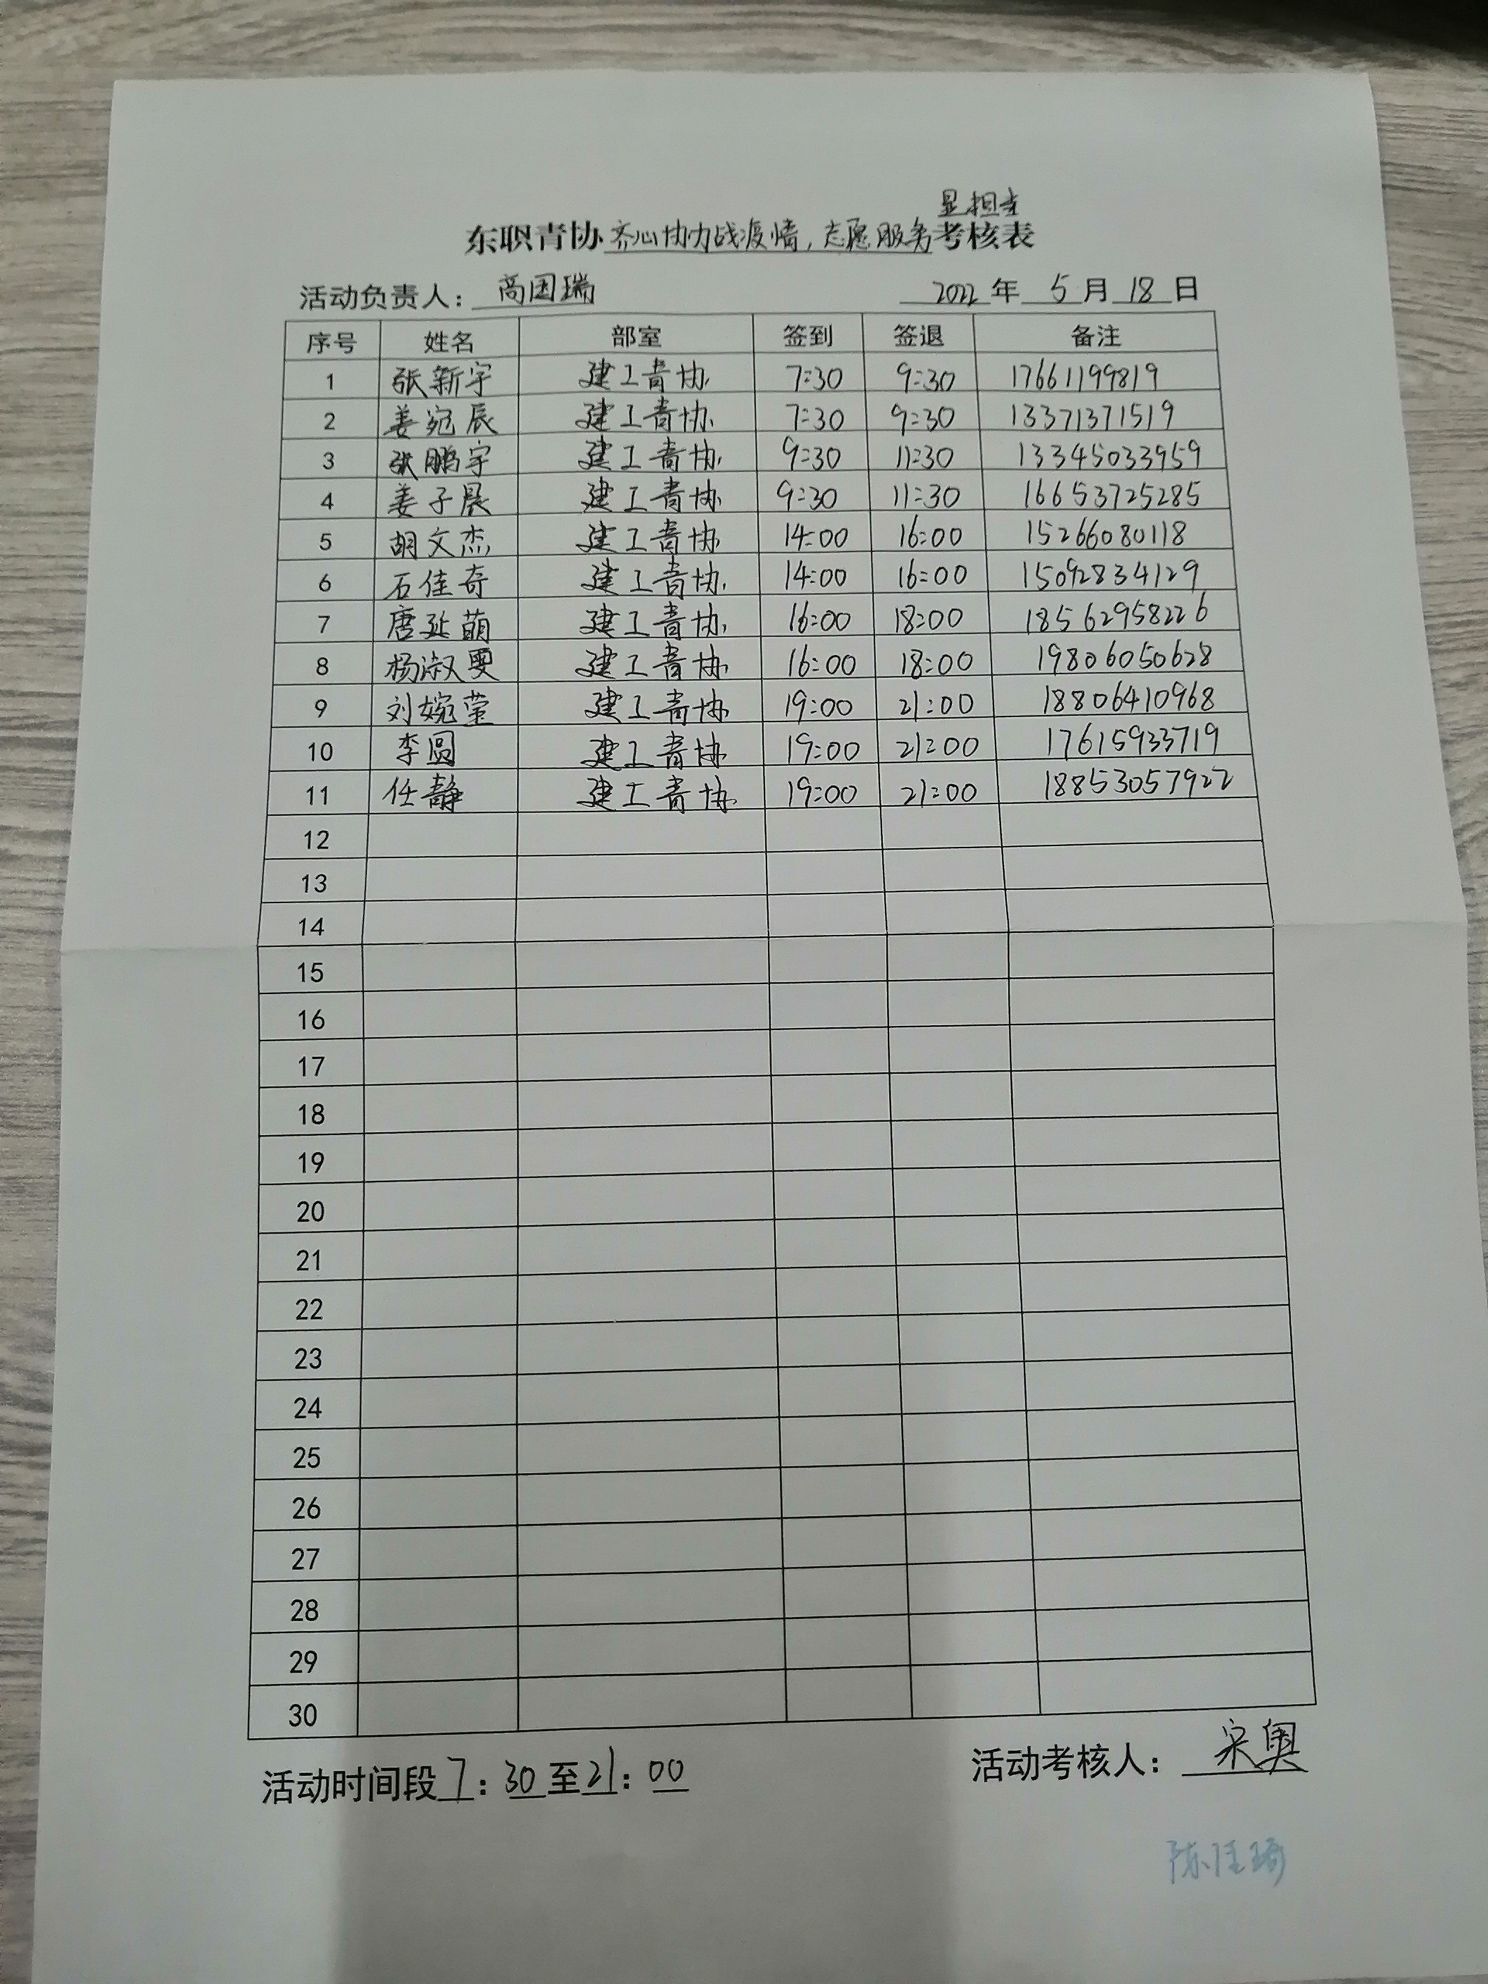 显担当
东职青协齐心协力战疫情,志愿服务考核表
活动负责人: 高国瑞 2022年 5月 18日
序号 姓名 部室 签到 签退 备注
1 张新宇 建工青协 7:30 9:30 17661199819
2 姜宛辰 建工青协 7:30 9:30 13371371519
3 张鹏宇 建工青协 9:30 11:30 13345033959
4 姜子晨 建工青协 9:30 11:30 16653725285
5 胡文杰 建工青协 14:00 16:00 15266080118
6 石佳奇 建工青协 14:00 16:00 15092834129
7 唐延萌 建工青协 16:00 18:00 18562958226
8 杨淑雯 建工青协 16:00 18:00 19806050628
9 刘婉莹 建工青协 19:00 21:00 18806410968
10 李圆 建工青协 19:00 21:00 17615933719
11 任静 建工青协 19:00 21:00 18853057922
12
13
14
15
16
17
18
19
20
21
22
23
24
25
26
27
28
29
30
活动时间段7:30至21:00 活动考核人: 宋奥
陈佳琦